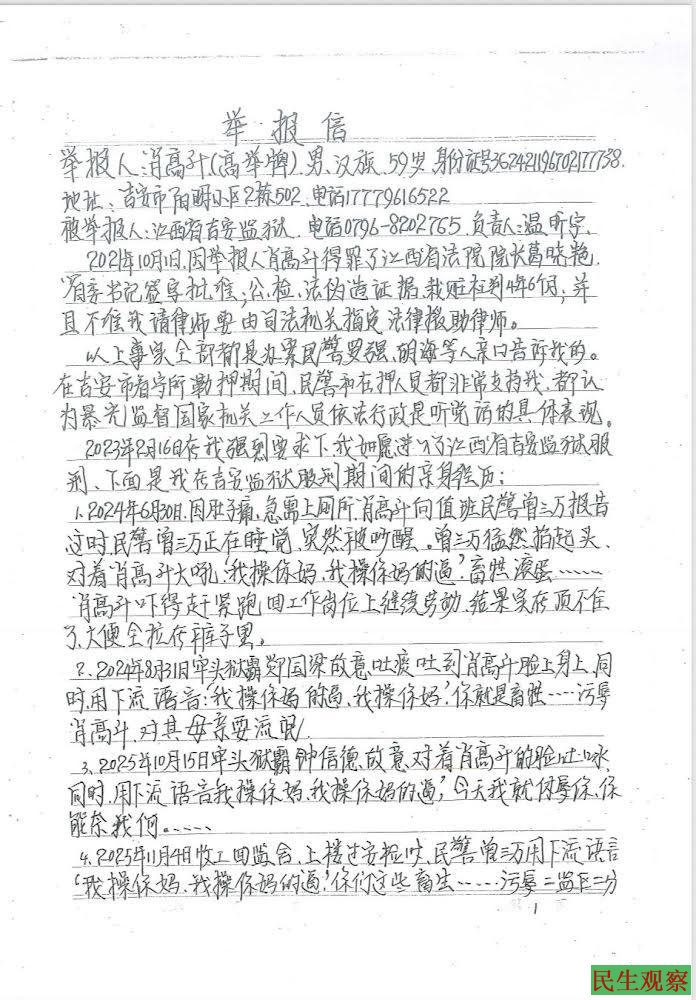 举报信
举报人:肖高斗(高举牌)男、汉族、59岁、身份证号362421196702177738.
地址:吉安市阳明小区2栋502、电话17779616522
被举报人:江西省吉安监狱、电话0796-8202765、负责人:温昕宇、
2021年10月1日,因举报人肖高斗得罪了江西省法院院长葛晓艳,
省委书记签字批准,公、检、法伪造证据,栽赃枉判4年6个月;并
且不准我请律师要由司法机关指定法律援助律师。
以上事实全部都是办案民警罗强、胡海等人亲口告诉我的。
在吉安市看守所勤押期间,民警和在押人员都非常支持我,都认
为暴光监督国家机关工作人员依法行政是听党话的具体表现。
2023年2月16日在我强烈要求下,我如愿进入了江西省吉安监狱服
刑、下面是我在吉安监狱服刑期间的亲身经历:
1.2024年6月30日,因肚子痛,急需上厕所,肖高斗向值班民警曾三万报告
这时,民警曾三万正在睡觉,突然被吵醒。曾三万猛然抬起头、
对着肖高斗大吼,‘我操你妈,我操你妈的逼’畜牲滚蛋……
肖高斗吓得赶紧跑回工作岗位上继续劳动,结果实在顶不住
了、大便全拉在裤子里。
2.2024年8月31日牢头狱霸郑国梁故意吐痰吐到肖高斗脸上身上,同
时,用下流语言:‘我操你妈的逼,我操你妈’你就是畜牲……污辱
肖高斗、对其母亲耍流氓/
3.2025年10月15日牢头狱霸钟信德,故意对着肖高斗的脸吐口水,
同时,用下流语言我操你妈,我操你妈的逼,’今天我就侮辱你,你
能奈我何……
4.2025年11月4日收工回监舍,上楼过安检时,民警曾三万用下流语言
‘我操你妈,我操你妈的逼’你们这些畜生……污辱二监区二分
1
民生观察